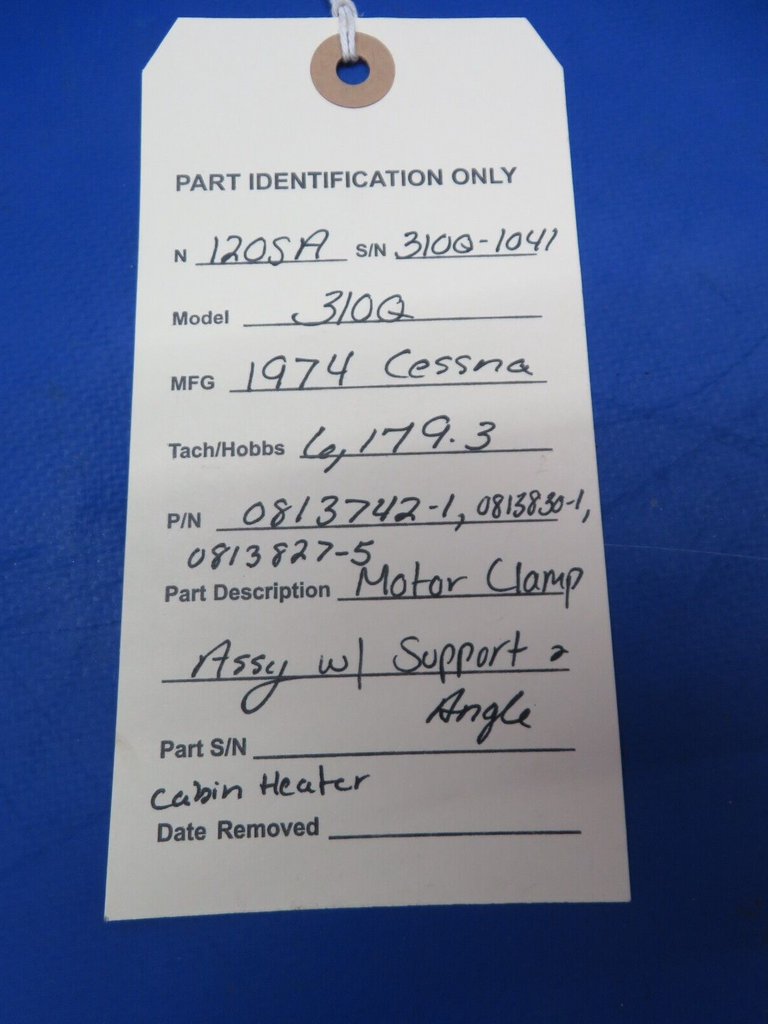 PART IDENTIFICATION ONLY
N 120SA S/N 310Q-1041
Model 310Q
MFG 1974 Cessna
Tach/Hobbs 6,179.3
P/N 0813742-1, 0813830-1,
0813827-5
Part Description Motor Clamp
Assy w/ Support &
Angle
Part S/N
Cabin Heater
Date Removed